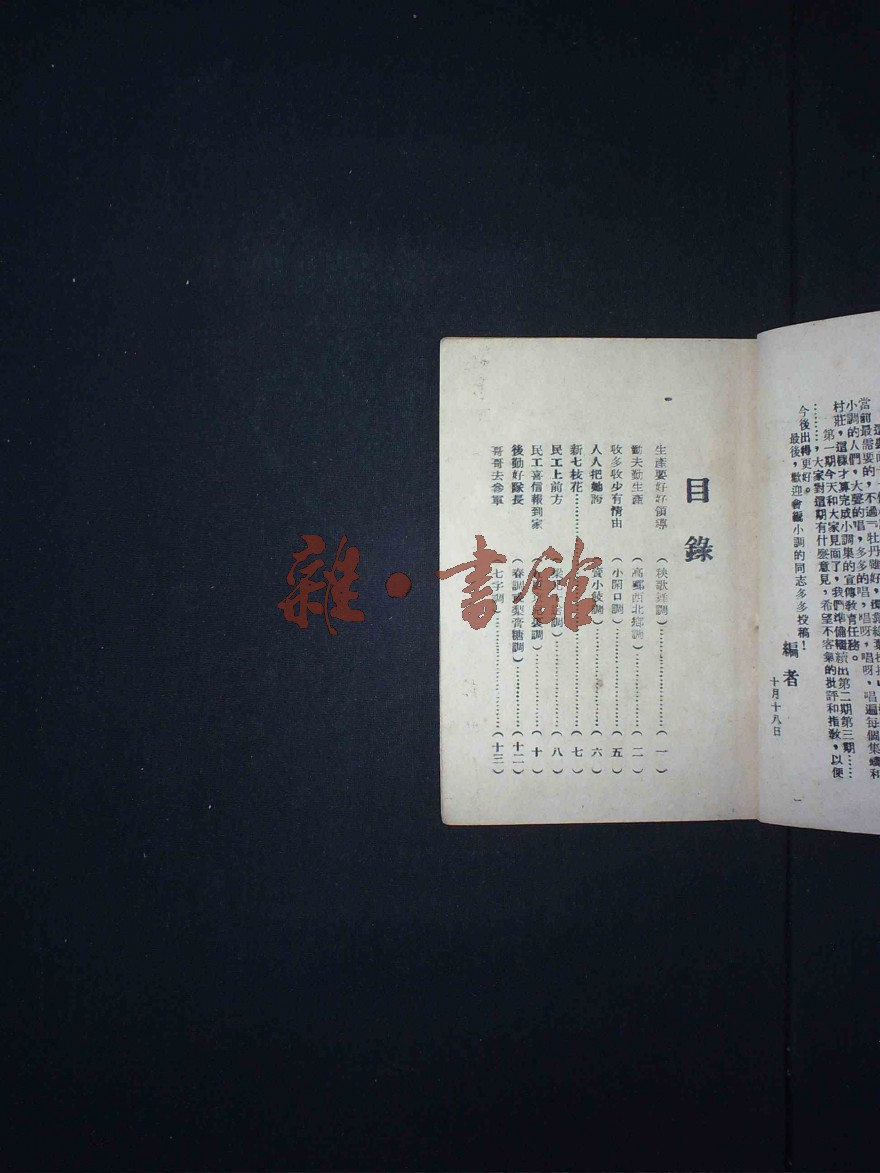 當前最需要的，不過『牡丹雖好，
小調的人們，大聲的唱，多多的唱，唱呀，唱呀，唱遍每個集鎮和
村莊，這樣才算完成小調集的宣傳教育任務。
第一期今天和大家見面了，我們準備繼續出第二期第三期……
………，大家對這期有什麼意見，希望不客氣的批評和指教，以便
今後出得更好。
最後，歡迎會編小調的同志多多投稿！
編者
十月十八日
目錄
生產要好好領導（秧歌 調）………………（一）
勸夫勤生產（高郵西北鄉調）…………（二）
收多收少有情由（小開口調）……………（五）
人人把她誇（賣小 調）………………（六）
新七枝花………………………………（七）
民工上前方 調）………………（八）
民工喜信報到家 調）………………（十）
後勤好隊長（春調 梨膏糖調）…………（十二）
哥哥去參軍（七字調）………………（十三）
雜·書館